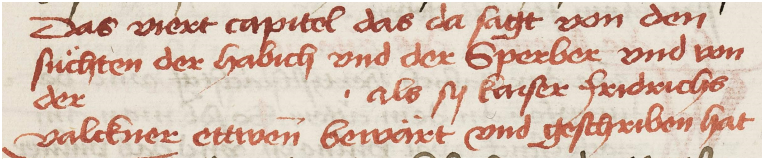 Das viert capitel das da sagt von den
süchten der habich vnd der Sperber vnd von
der als sy kaiser fridrichs
valckner ettwen̄ bewärt vnd geschriben hat